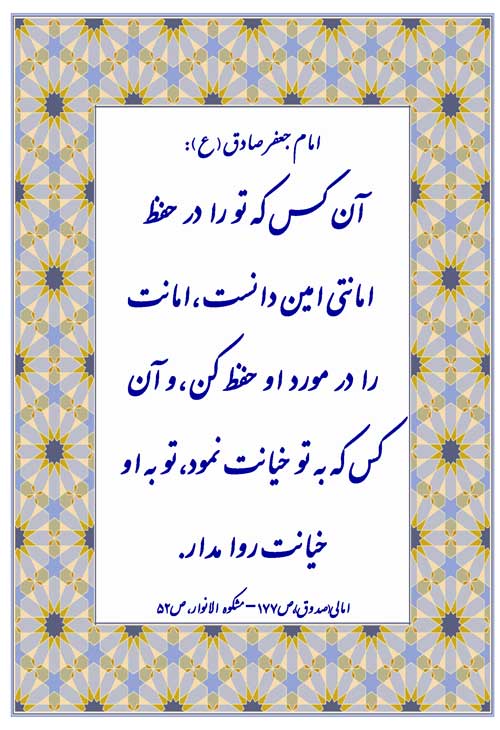 امام جعفر صادق (ع):
آن کس که تو را در حفظ
امانتی امین دانست، امانت
را در مورد او حفظ کن، و آن
کس که به تو خیانت نمود، تو به او
خیانت روا مدار.
امالی(صدوق)،ص۱۷۷-مشکوه الانوار،ص۵۲